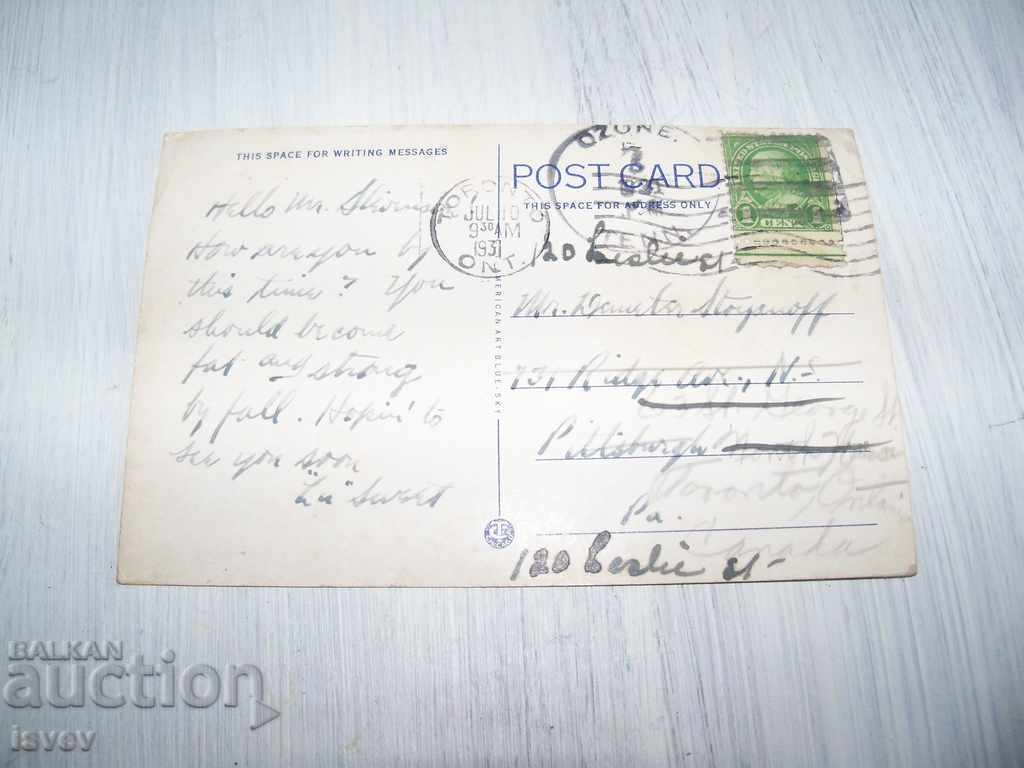 THIS SPACE FOR WRITING MESSAGES
Hello Mr.
How are you by
this time? You
should become
fat and strong
by fall. Hopin' to
see you soon
Sweet
TORONTO
JUL 10
9 30 AM
1931
ONT.
OZONE.
TENN.
POST CARD
THIS SPACE FOR ADDRESS ONLY
1 CENT 1
120 Leslie St
Mr. Stoyanoff
731 Ridge Ave., N.S.
Pittsburgh
Pa.
St. George St.
Toronto
Canada
120 Leslie St-
AMERICAN ART BLUE-SKY
BALKAN
auction
isvey